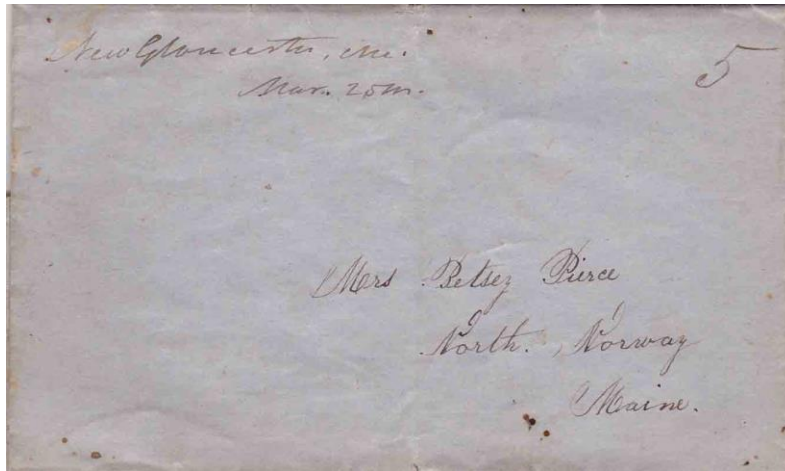 New Gloucester, Me.
5
Mar. 25th.
Mors Betsey Pierce
North. Norway
Maine.